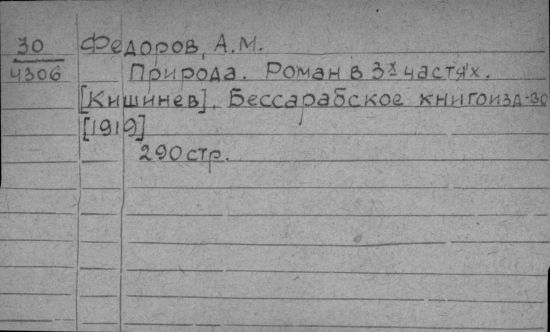 30 Федоров, А.М.
4306 Природа. Роман в 3х частях.
[Кишинев]. Бессарабское книгоизд-во
[1919]
290 стр.